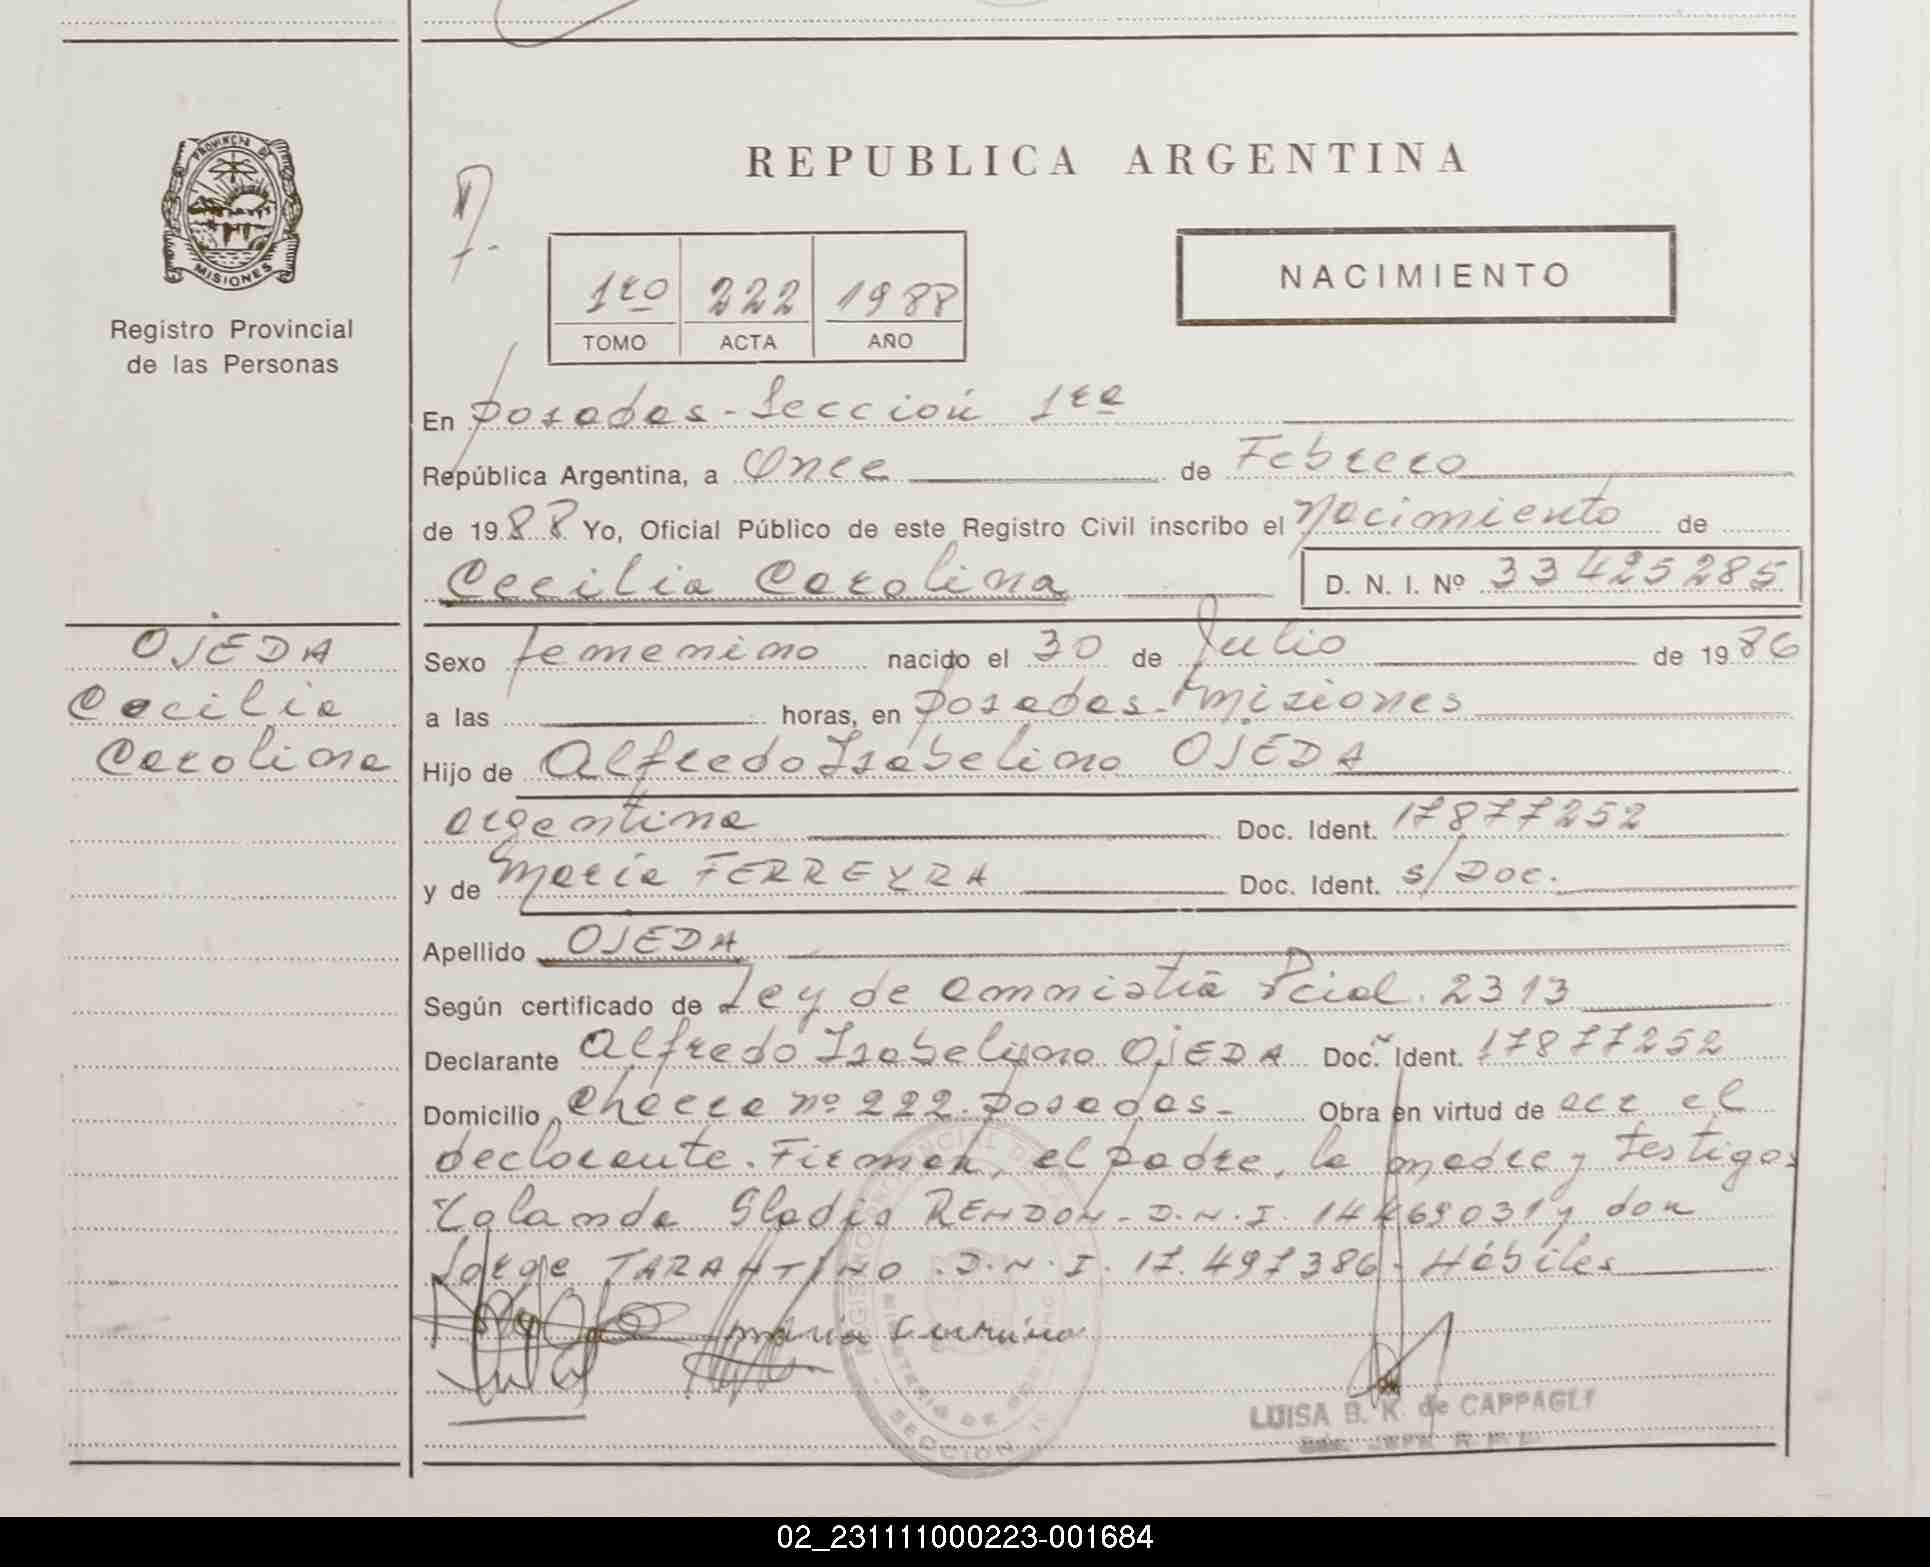 PROVINCIA DE
MISIONES
Registro Provincial
de las Personas
REPUBLICA ARGENTINA
1ro 222 1988
TOMO ACTA AÑO
NACIMIENTO
En Posadas - Sección 1ra
República Argentina, a Once de Febrero
de 1988 Yo, Oficial Público de este Registro Civil inscribo el Nacimiento de
Cecilia Carolina D. N. I. Nº 33425285
OJEDA
Cecilia
Carolina
Sexo femenino nacido el 30 de Julio de 1986
a las horas, en Posadas - Misiones
Hijo de Alfredo Isabelino OJEDA
argentina Doc. Ident. 17877252
y de María FERREYRA Doc. Ident. s/Doc.
Apellido OJEDA
Según certificado de Ley de amnistía Pcial. 2313
Declarante Alfredo Isabelino OJEDA Doc. Ident. 17877252
Domicilio Chacra nº 222. Posadas - Obra en virtud de ser el
declarante. Firman, el padre, la madre y testigos
Yolanda Gladis RENDON - D.N.I. 14469031 y don
Jorge TARANTINO . D.N.I. 17.497386 - Hábiles
LUISA B. K. de CAPPAGLI
02_231111000223-001684